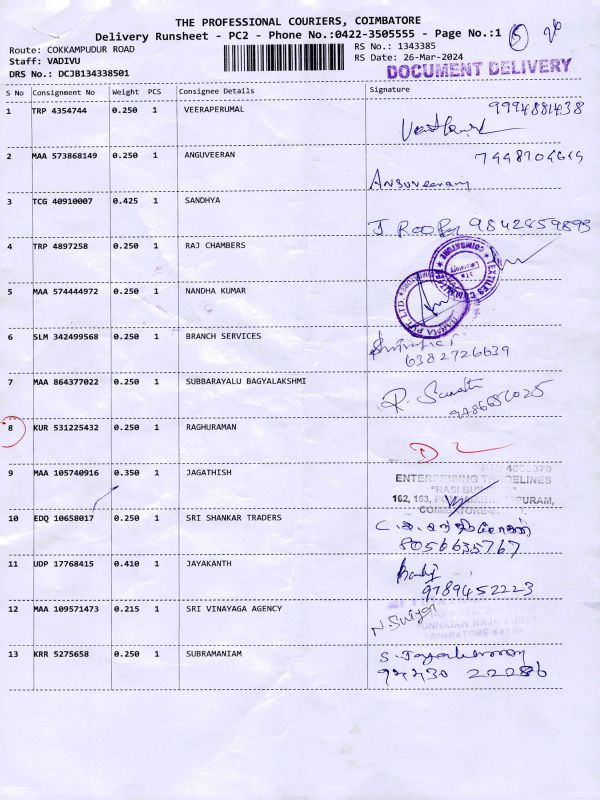 THE PROFESSIONAL COURIERS, COIMBATORE
Delivery Runsheet - PC2 - Phone No.:0422-3505555 - Page No.:1
Route: COKKAMPUDUR ROAD
Staff: VADIVU
DRS No.: DCJB134338501
RS No.: 1343385
RS Date: 26-Mar-2024
DOCUMENT DELIVERY
S No Consignment No Weight PCS Consignee Details Signature
1 TRP 4354744 0.250 1 VEERAPERUMAL 9994881438
2 MAA 573868149 0.250 1 ANGUVEERAN
Anguveeran
3 TCG 40910007 0.425 1 SANDHYA
9842859899
4 TRP 4897258 0.250 1 RAJ CHAMBERS
5 MAA 574444972 0.250 1 NANDHA KUMAR
6 SLM 342499568 0.250 1 BRANCH SERVICES
6382726639
7 MAA 864377022 0.250 1 SUBBARAYALU BAGYALAKSHMI
8 KUR 531225432 0.250 1 RAGHURAMAN
9 MAA 105740916 0.350 1 JAGATHISH
ENTERPRISING
162, 163,
10 EDQ 10658017 0.250 1 SRI SHANKAR TRADERS
8056635767
11 UDP 17768415 0.410 1 JAYAKANTH
9789452223
12 MAA 109571473 0.215 1 SRI VINAYAGA AGENCY
13 KRR 5275658 0.250 1 SUBRAMANIAM
94430 22086